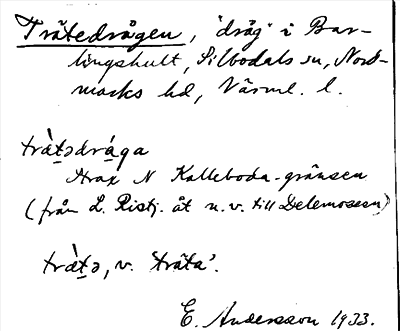 Trätedrågen, 'dråg' i Bar-
lingshult, Silbodals sn, Nord-
marks hd, Värml. l.
trä̀tədrága
strax N Kalleboda-gränsen
(från L. Ristj. åt n.v. till Delemossen)
trä̀tə, v. 'träta'.
E. Andersson 1933.